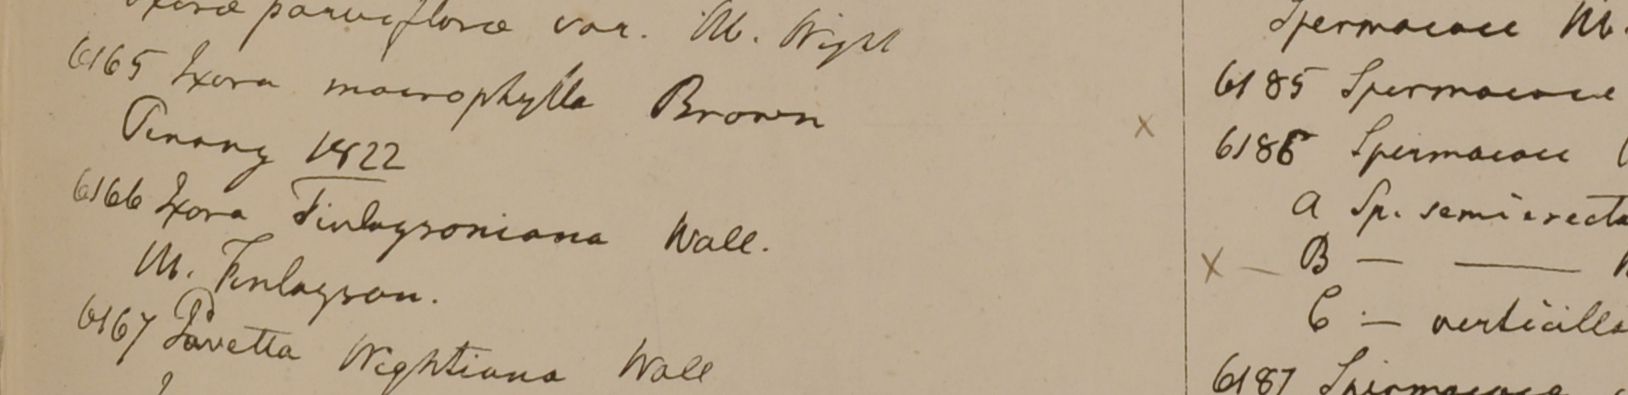 Ixora parviflora var. Hb. Wight
6165 Ixora macrophylla Brown
Penang 1822
6166 Ixora Finlaysoniana Wall.
Hb. Finlayson.
6167 Pavetta Wightiana Wall
Spermacoce Hb.
6185 Spermacoce
6186 Spermacoce
a Sp. semierecta
B — —
C — verticilla
6187 Spermacoce